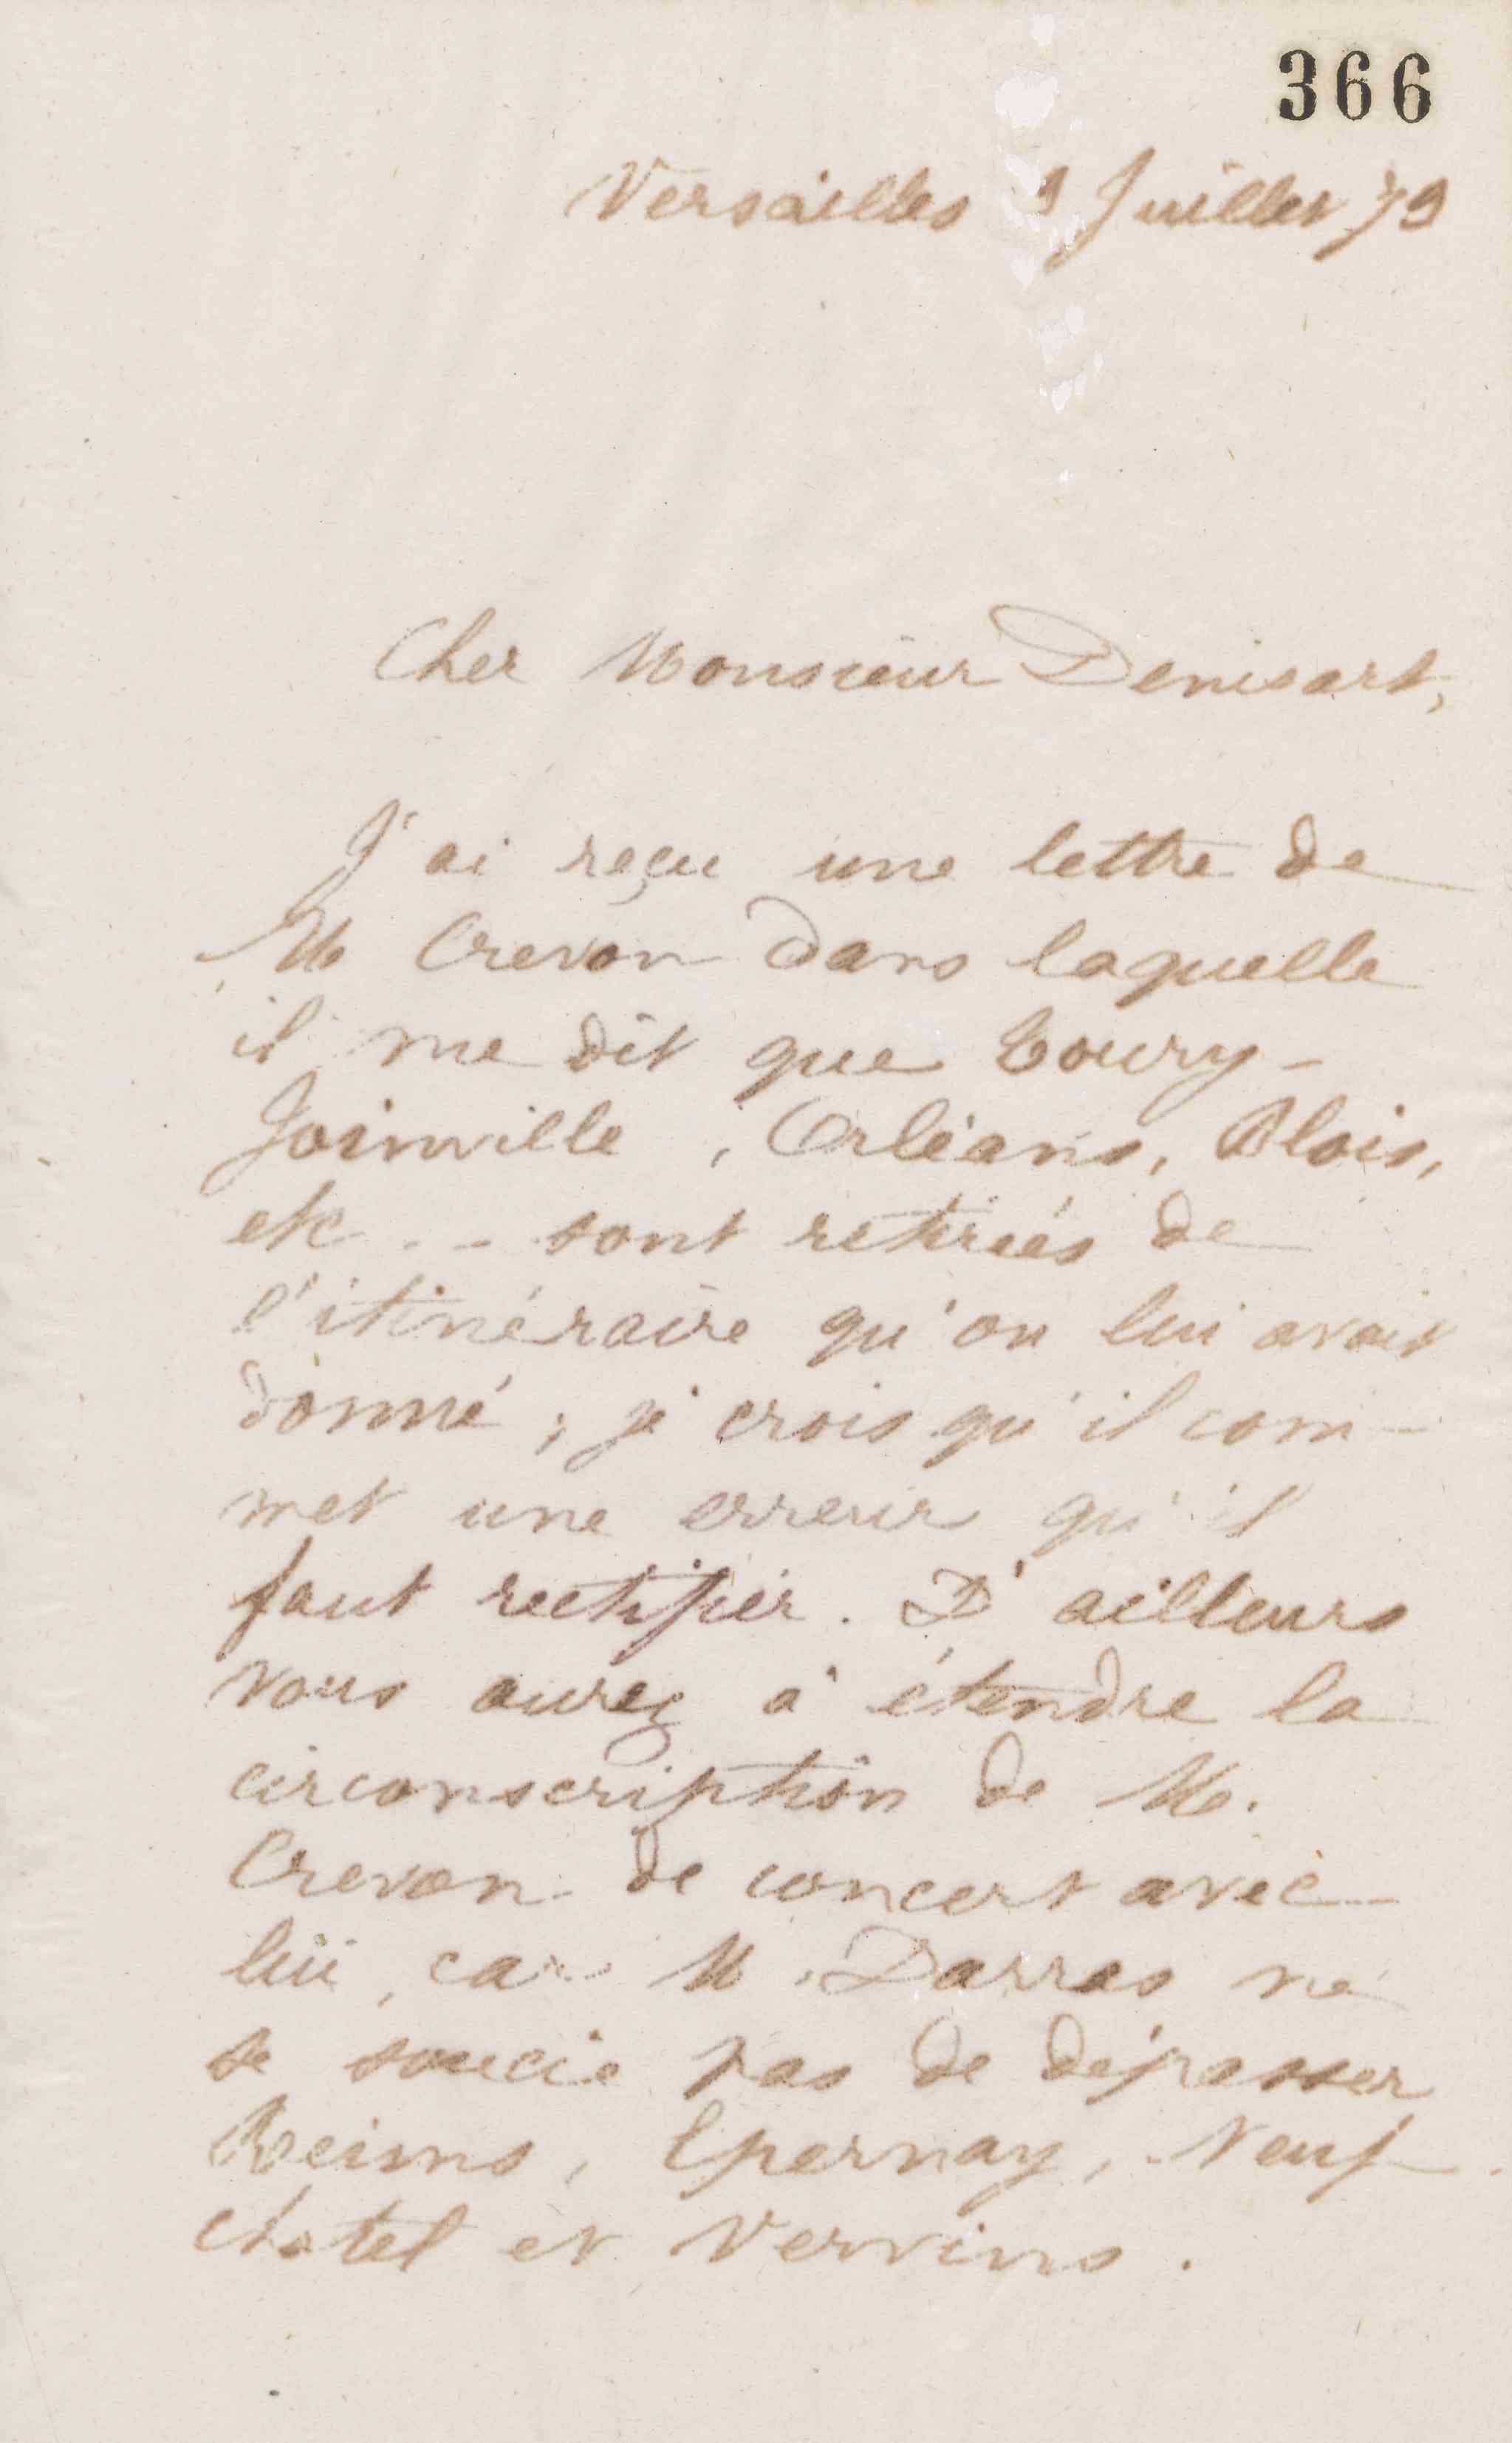 366
Versailles 9 Juillet 79
Cher Monsieur Denisart,
J'ai reçu une lettre de
M Crevon dans laquelle
il me dit que Toury-
Joinville, Orléans, Blois,
etc... sont retirés de
l'itinéraire qu'on lui avait
donné; je crois qu'il com-
met une erreur qu'il
faut rectifier. D'ailleurs
vous aurez à étendre la
circonscription de M.
Crevon de concert avec
lui, car M. Darras ne
se soucie pas de dépasser
Reims, Epernay, Neuf
chatel et Vervins.